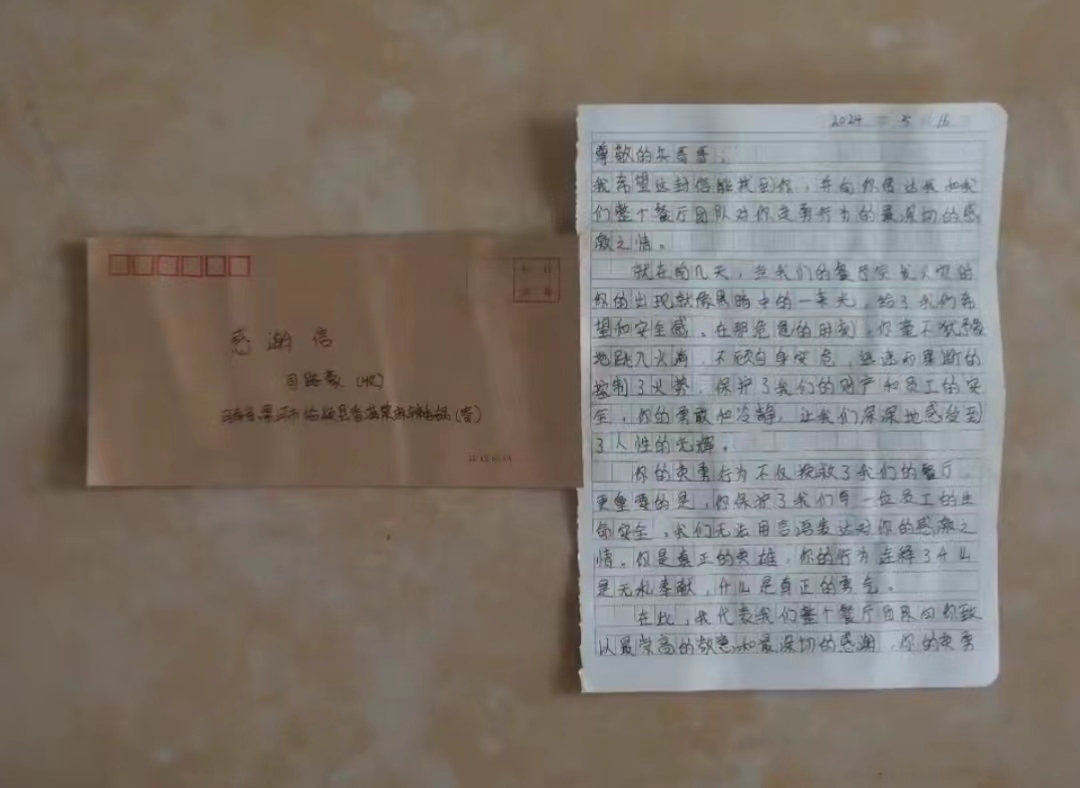 感谢信
2024年5月16
尊敬的兵哥哥：
我希望这封信能找到你，并向你传达我和我
们整个餐厅团队对你英勇行为的最深切的感
激之情。
就在前几天，当我们的餐厅突发火灾时
你的出现就像黑暗中的一束光，给了我们希
望和安全感。在那危急的时刻，你毫不犹豫
地踏入火海，不顾自身安危，迅速而果断的
控制了火势，保护了我们的财产和员工的安
全，你的勇敢和冷静，让我们深深地感受到
了人性的光辉。
你的英勇行为不仅挽救了我们的餐厅，
更重要的是，你保护了我们每一位员工的生
命安全，我们无法用言语表达对你的感激之
情。你是真正的英雄，你的行为诠释了什么
是无私奉献，什么是真正的勇气。
在此，我代表我们整个餐厅团队向你致
以最崇高的敬意和最深切的感谢，你的英勇